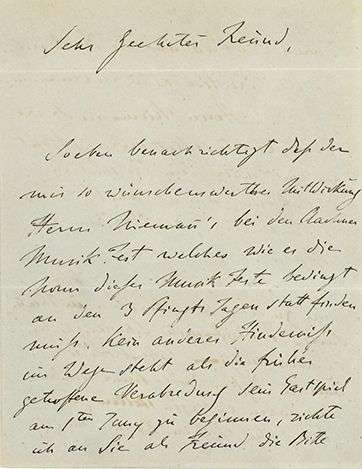 Sehr geehrter Freund,
Soeben benachrichtigt daß der
mir so wünschenswerthen Mitwirkung
Herrn Niemann's bei dem Aachner
Musik Fest welches wie es die
Norm dieser Musik Feste bedingt
an den 3 Pfingst Tagen statt finden
muß kein anderes Hinderniß
im Wege steht als die früher
getroffene Verabredung sein Gastspiel
am 1ten Juny zu beginnen, richte
ich an Sie als Freund die Bitte